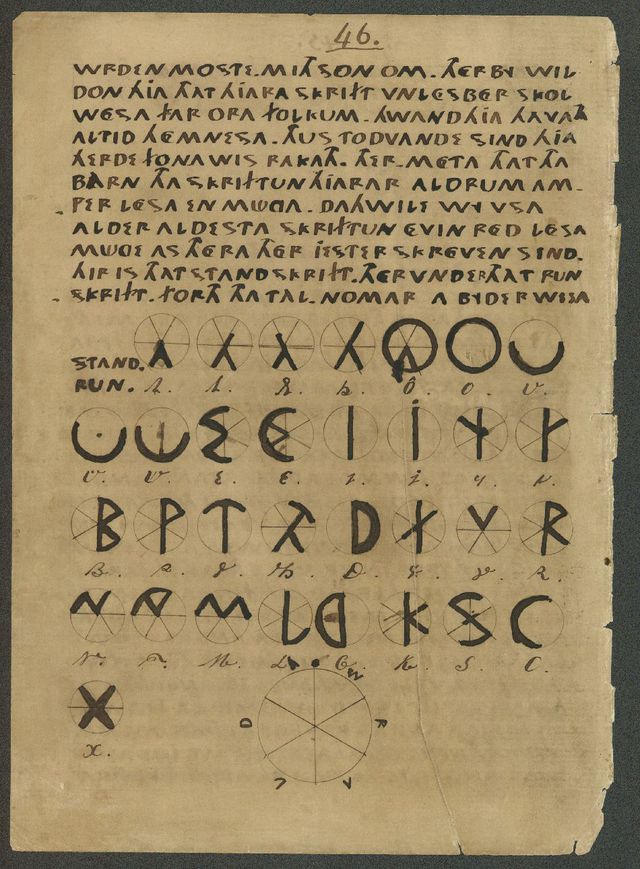 46.
WRDEN MOSTE. MITH SON OM. THERBY WIL
DON HIA THAT HIARA SKRIFT VNLESBER SKOL
WESA FAR ORA FOLKUM. HWAND HIA HAVATH
ALTID HEMNESA. THUS TODVANDE SIND HIA
HERDE FONA WIS RAKATH. THER-META THAT THA
BARN THA SKRIFTUN HIARAR ALDRUM AM-
PER LESA EN MUGA. DAHWILE WY VSA
ALDER ALDESTA SKRIFTUN EVIN RED LESA
MUGE AS THERA THER IESTER SKREVEN SIND.
HIR IS THAT STANDSKRIFT. THERVNDER THAT RUN
SKRIFT. FORTH THA TAL-NOMAR A BYDER WISA
STAND.
RUN.
B P T TH D F V R
B. P. T. Th. D. F. V. R.
N NG M L G K S C
N. M. L. G. K. S. C.
X
X.
W R A L D